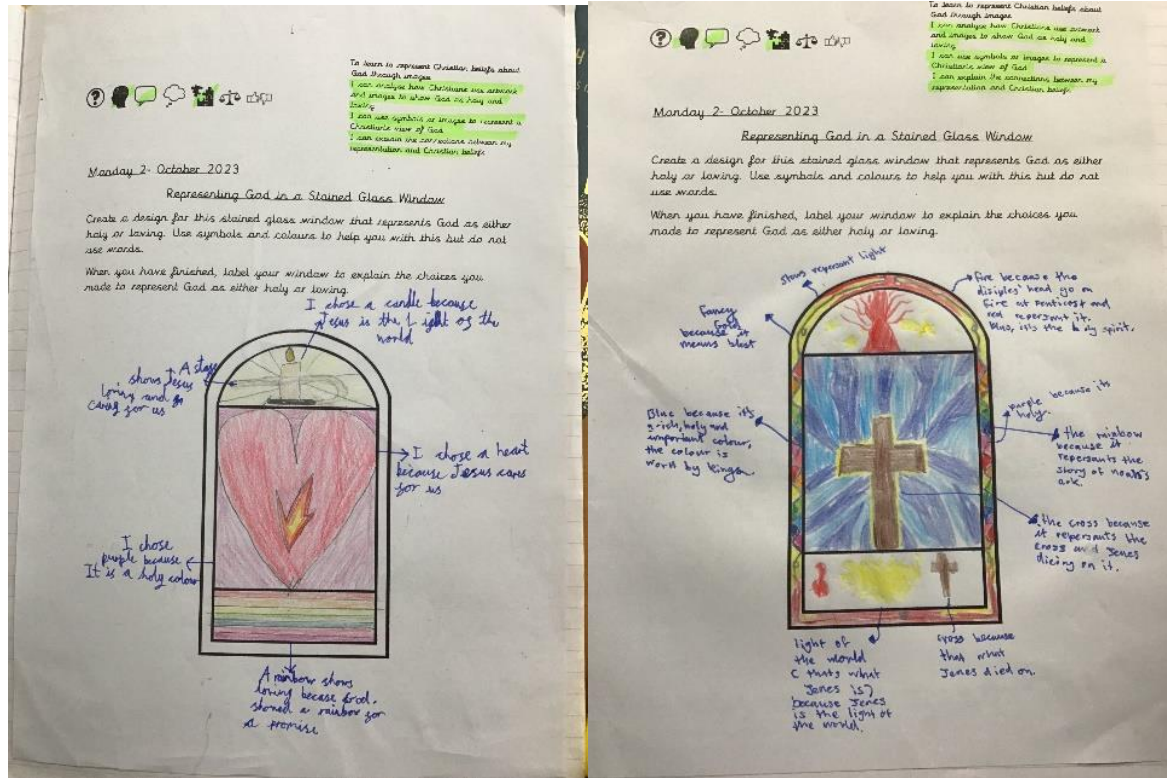 To learn to represent Christian beliefs about
God through images
I can analyse how Christians use artwork
and images to show God as holy and
loving
I can use symbols or images to represent a
Christian's view of God
I can explain the connections between my
representation and Christian beliefs
Monday 2nd October 2023
Representing God in a Stained Glass Window
Create a design for this stained glass window that represents God as either
holy or loving. Use symbols and colours to help you with this but do not
use words.
When you have finished, label your window to explain the choices you
made to represent God as either holy or loving.
I chose a candle because
Jesus is the Light of the
world
shows Jesus
loving and
caring for us
I chose a heart
because Jesus cares
for us
I chose
purple because
It is a holy colour
A rainbow shows
loving becase God.
showed a rainbow for
a promise
To learn to represent Christian beliefs about
God through images
I can analyse how Christians use artwork
and images to show God as holy and
loving
I can use symbols or images to represent a
Christian's view of God
I can explain the connections between my
representation and Christian beliefs.
Monday 2nd October 2023
Representing God in a Stained Glass Window
Create a design for this stained glass window that represents God as either
holy or loving. Use symbols and colours to help you with this but do not
use words.
When you have finished, label your window to explain the choices you
made to represent God as either holy or loving.
Stars repersent light
Fancy
Gold
because it
means blest
fire because the
disiples' head go on
fire at Penticost and
red repersant it.
Blue because it's
a rich, holy and
important colour,
the colour is
worn by kings.
purple because its
holy.
the rainbow
because it
repersants the
story of noah's
ark.
the cross because
it repersants the
cross and Jenes
dieing on it.
light of
the world
( thats what
Jenes is)
because Jenes
is the light of
the world.
cross because
that what
Jenes died on.